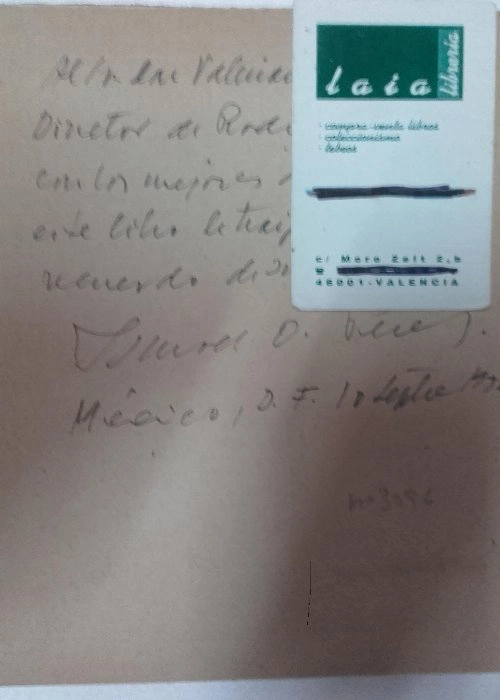 Al Sr. Dn. Valencia
Director de Radi
con los mejores
este libro le traiga
recuerdo de su
Ismael D.
México, D. F. 10 Septre
nº 3096
laia
librería
· compra-venta libros
· coleccionismo
· tebeos
c/ Moro Zeit 2, b
46001-VALENCIA